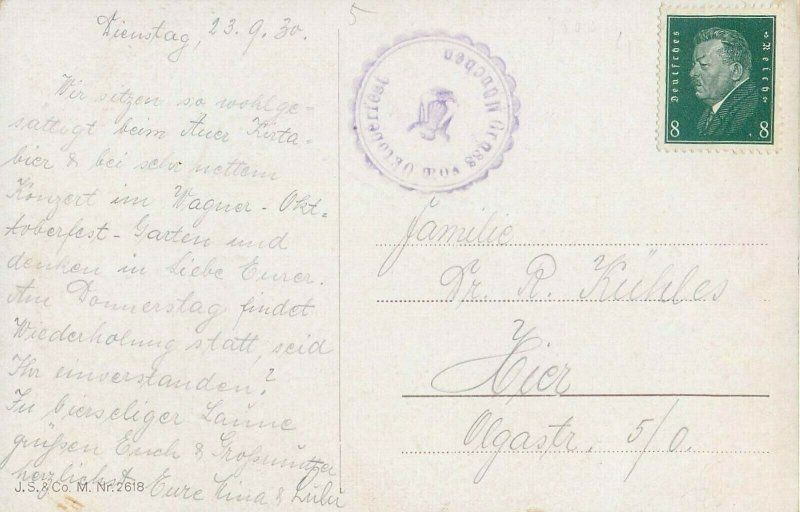 Dienstag, 23.9.30.
5
Wir sitzen so wohlge-
sättigt beim Auer Kirta-
bier & bei sehr nettem
Konzert im Wagner-Okt-
toberfest-Garten und
denken in Liebe Eurer.
Am Donnerstag findet
Wiederholung statt, seid
Ihr einverstanden?
In bierseliger Laune
grüßen Euch & Großmutter
herzlichst Eure Lina & Lulu
J.S. & Co. M. Nr. 2618
Gruss vom Oktoberfest
München
Deutsches Reich
8 8
Familie
Dr. R. Kühles
Hier
Olgastr. 5/0.